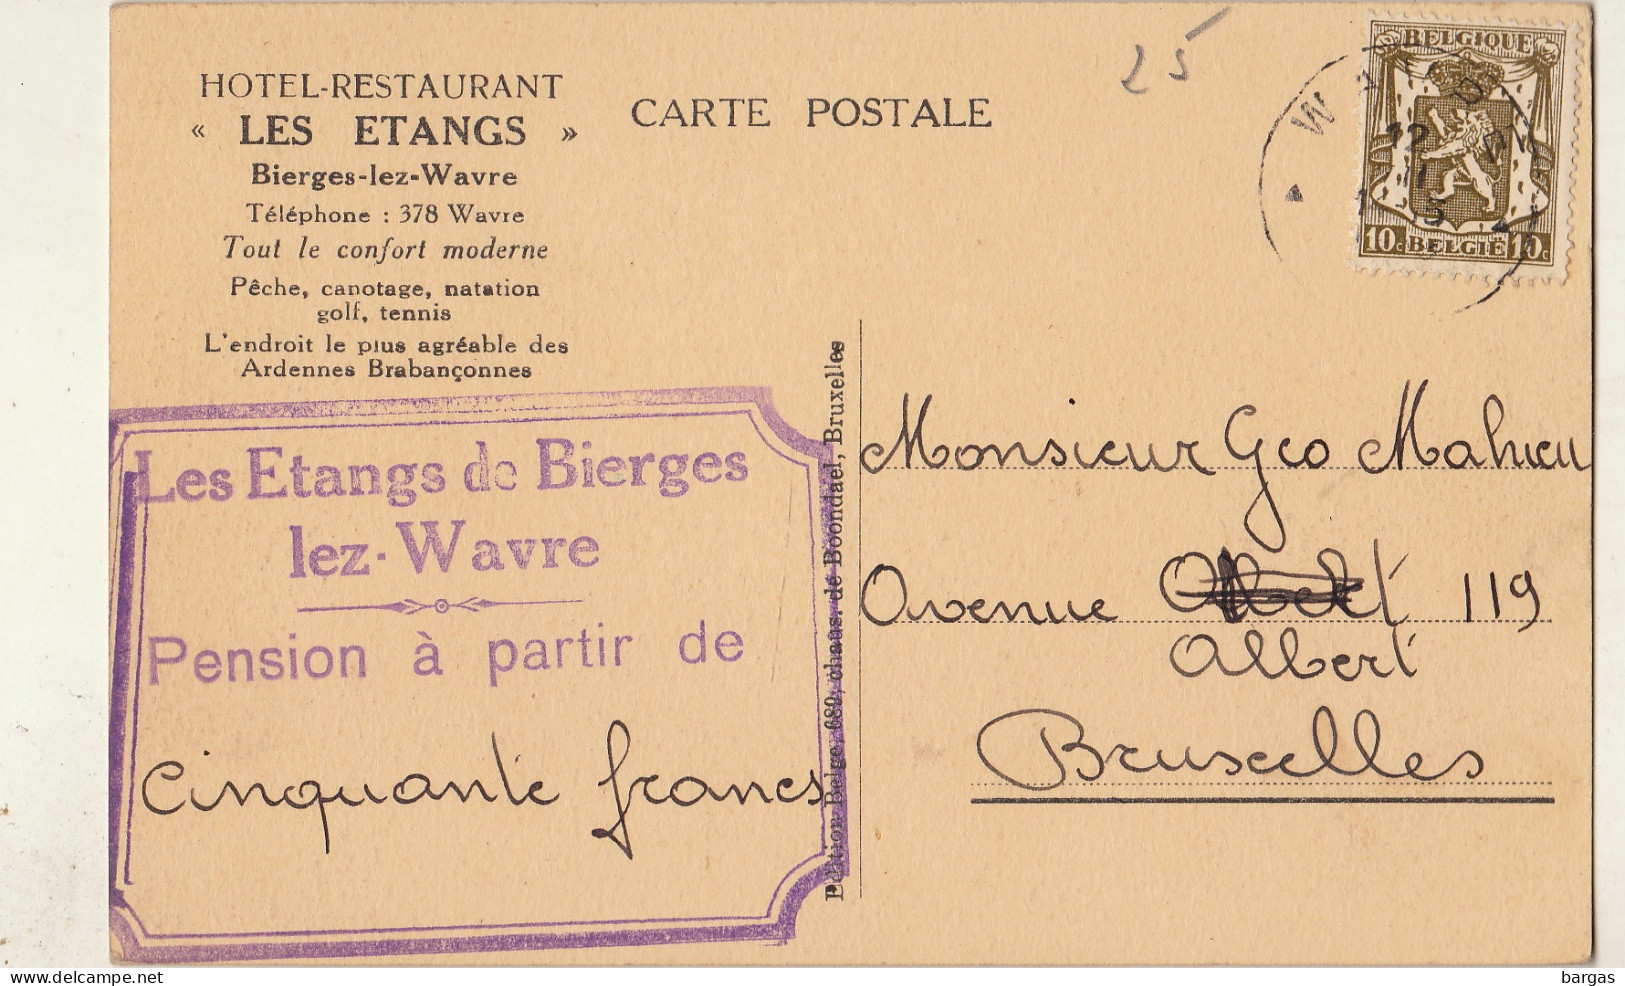 HOTEL-RESTAURANT
« LES ETANGS »
Bierges-lez-Wavre
Téléphone : 378 Wavre
Tout le confort moderne
Pêche, canotage, natation
golf, tennis
L'endroit le plus agréable des
Ardennes Brabançonnes
CARTE POSTALE
25
BELGIQUE
10c BELGIË 10c
12
Les Etangs de Bierges
lez-Wavre
Pension à partir de
cinquante francs
Edition Belge, 689, chaus. de Boondael, Bruxelles
Monsieur Geo Mahieu
Avenue 119
Albert
Bruxelles
delcampe.net
bargas